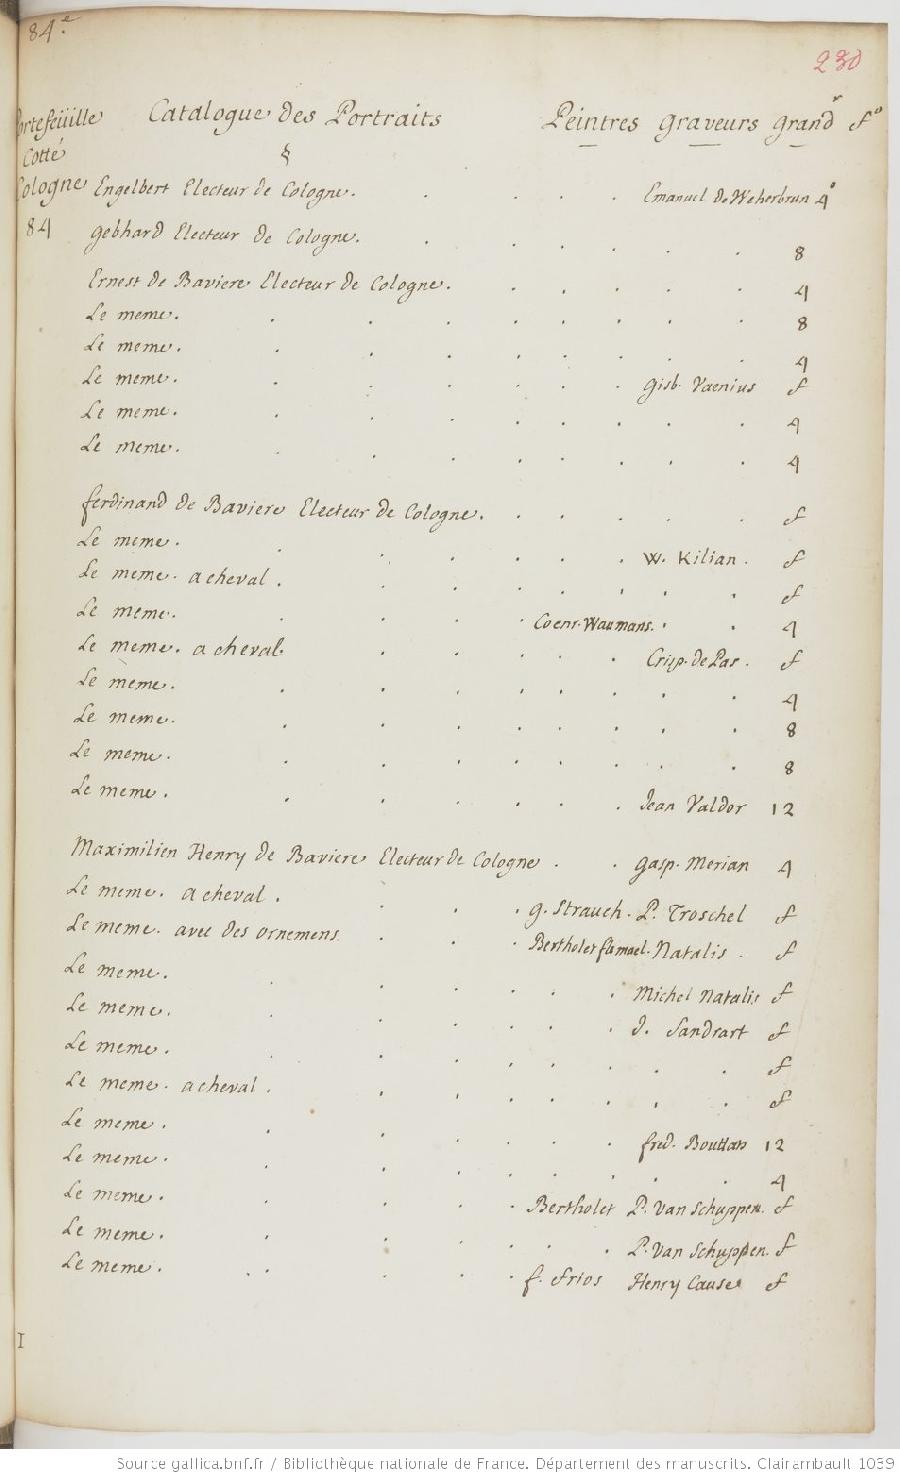 84.e
230
Portefeüille Catalogue des Portraits Peintres graveurs grandr fo
Cotté
Cologne Engelbert Electeur de Cologne. Emanuel de Weherbrun 4o
84 gebhard Electeur de Cologne. 8
Ernest de Baviere Electeur de Cologne. 4
Le meme. 8
Le meme. 4
Le meme. gisb. Vaenius f
Le meme. 4
Le meme. 4
ferdinand de Baviere Electeur de Cologne. f
Le meme. W. Kilian. f
Le meme. a cheval. f
Le meme. Coenr. Waumans. 4
Le meme. a cheval. Crisp. de Pas. f
Le meme. 4
Le meme. 8
Le meme. 8
Le meme. Jean Valdor 12
Maximilien Henry de Baviere Electeur de Cologne. gasp. Merian 4
Le meme. a cheval. g. Strauch. P. Troschel f
Le meme. avec des ornemens. Bertholet Natalis. f
Le meme. Michel Natalis f
Le meme. J. Sandrart f
Le meme. f
Le meme. a cheval. f
Le meme. fred. Bouttats 12
Le meme. 4
Le meme. Bertholet P. van Schuppen. f
Le meme. P. van Schuppen. f
Le meme. f. Henry Causé f
I
Source gallica.bnf.fr / Bibliothèque nationale de France. Département des manuscrits. Clairambault 1039